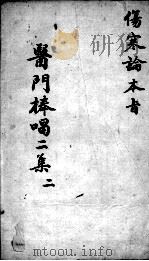 傷寒論本旨
醫門棒喝二集 二
mtoou.info